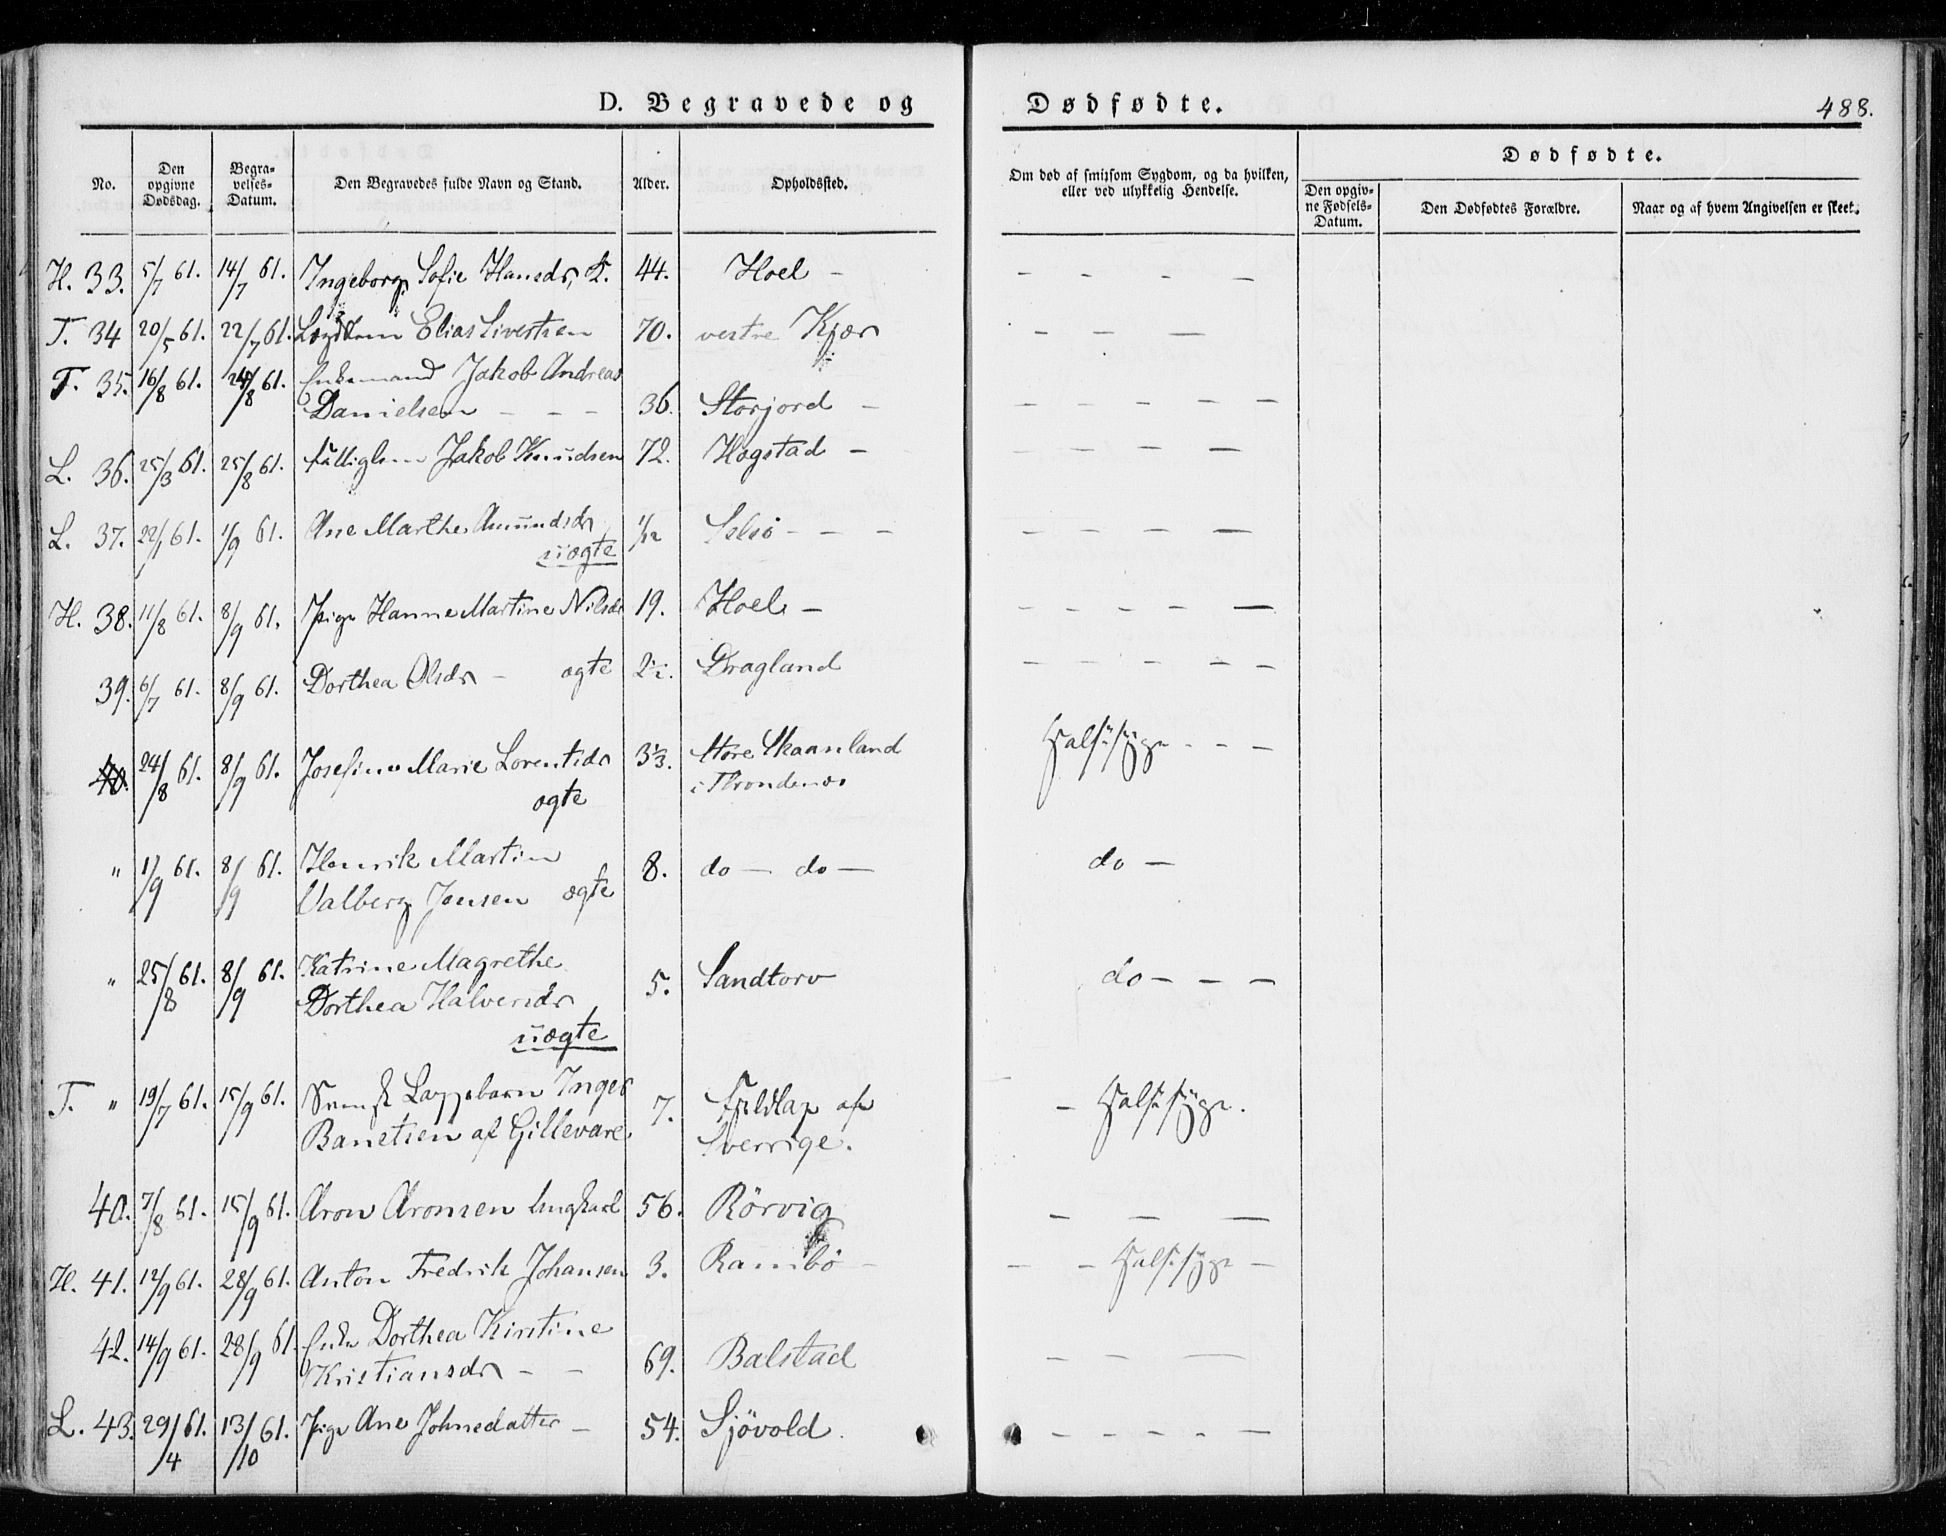 D. Begravede og Dødfødte. 488.
No. Den opgivne Dødsdag. Begravelses-Datum. Den Begravedes fulde Navn og Stand. Alder. Opholdssted. Om død af smitsom Sygdom, og da hvilken, eller ved ulykkelig Hendelse. Dødfødte.
Den opgivne Fødsels-Datum. Den Dødfødtes Forældre. Naar og af hvem Angivelsen er skeet.
H. 33. 5/7 61. 14/7 61. Ingeborg Sofie Hansdr, K. 44. Hoel - - - - -
T. 34 20/5 61. 22/7 61. Elias Sivertsen 70. vestre Kjær - - -
T. 35. 16/8 61. 24/8 61. Enkemand Jakob Andreas
Danielsen - - - 36. Storjord - - - - - -
L. 36. 25/3 61. 25/8 61. Jakob Knudsen 72. Hogstad - - - - -
L. 37. 22/1 61. 1/9 61. Ane Marthe Amundsdr
uægte 1/12 Selsö - - - - - - - -
H. 38. 11/8 61. 8/9 61. Pige Hanne Martine Nilsdr 19. Hoel - - - - - -
39. 6/7 61. 8/9 61. Dorthea Olsdr - ægte 2½. Dragland - - - - -
40. 24/8 61. 8/9 61. Josefine Marie Lorentsdr 3⅓. Store Skaanland Halssyge - - -
ægte i Throndenæs
" 1/9 61. 8/9 61. Henrik Martin
Valberg Jensen ægte 8. do - do - do -
" 25/8 61. 8/9 61. Katrine Magrethe
Dorthea Halversdr 5. Sandtorv do - - -
uægte
T. " 19/7 61. 15/9 61. Svensk Lappebarn Inger
Banetsen af Gillevare 7. Fjeldlap af - Halssyge.
Sverrige.
40. 7/8 61. 15/9 61. Aron Aronsen Ungkarl 56. Rörvig - - -
H. 41. 12/9 61. 28/9 61. Anton Fredrik Johansen 3. Rambö - - - Halssyge -
42. 14/9 61. 28/9 61. Enke Dorthea Kirstine
Kristiansdr - - 69. Balstad - - -
L. 43. 29/4 61. 13/10 61. Pige Ane Johnsdatter - 54. Sjövold. - - - - - -